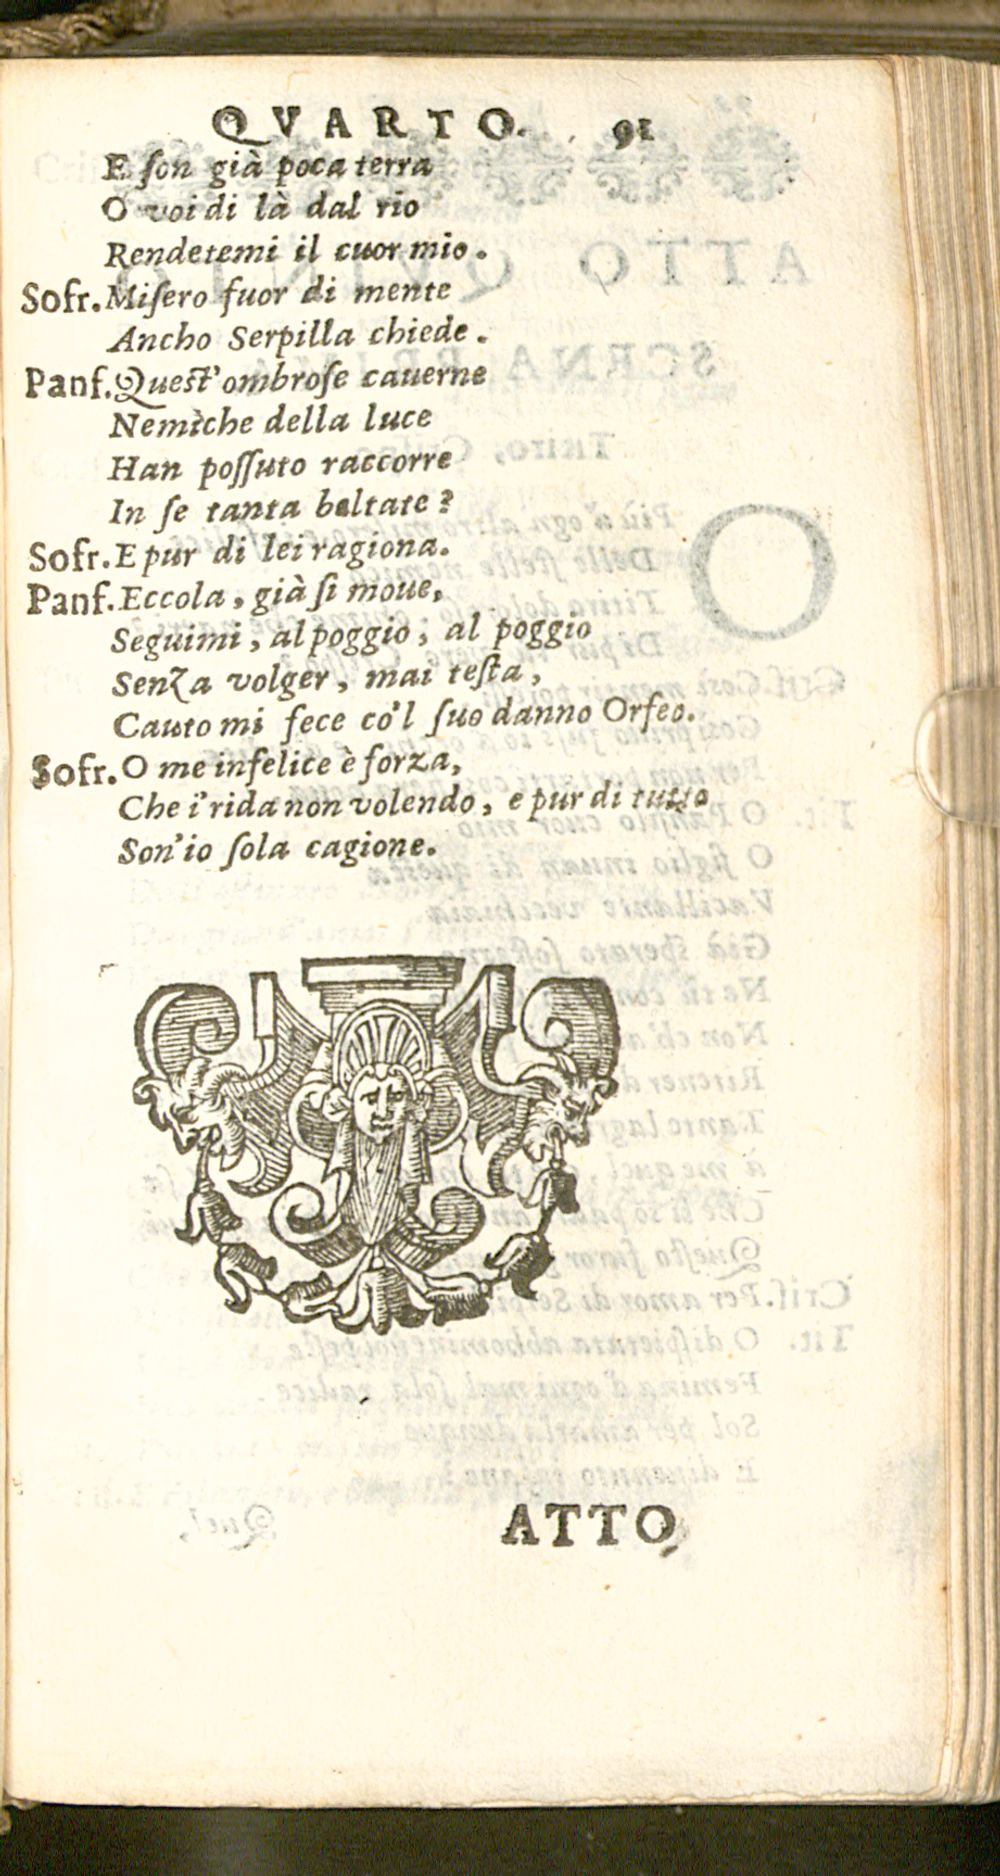 QVARTO. 91
E ſon già poca terra
O voi di là dal rio
Rendetemi il cuor mio.
Sofr. Miſero fuor di mente
Ancho Serpilla chiede.
Panf. Queſt'ombroſe cauerne
Nemiche della luce
Han poſſuto raccorre
In ſe tanta beltate?
Sofr. E pur di lei ragiona.
Panf. Eccola, già ſi moue,
Seguimi, al poggio, al poggio
Senza volger, mai teſta,
Cauto mi fece co'l ſuo danno Orfeo.
Sofr. O me infelice è forza,
Che i' rida non volendo, e pur di tutto
Son'io ſola cagione.
ATTO